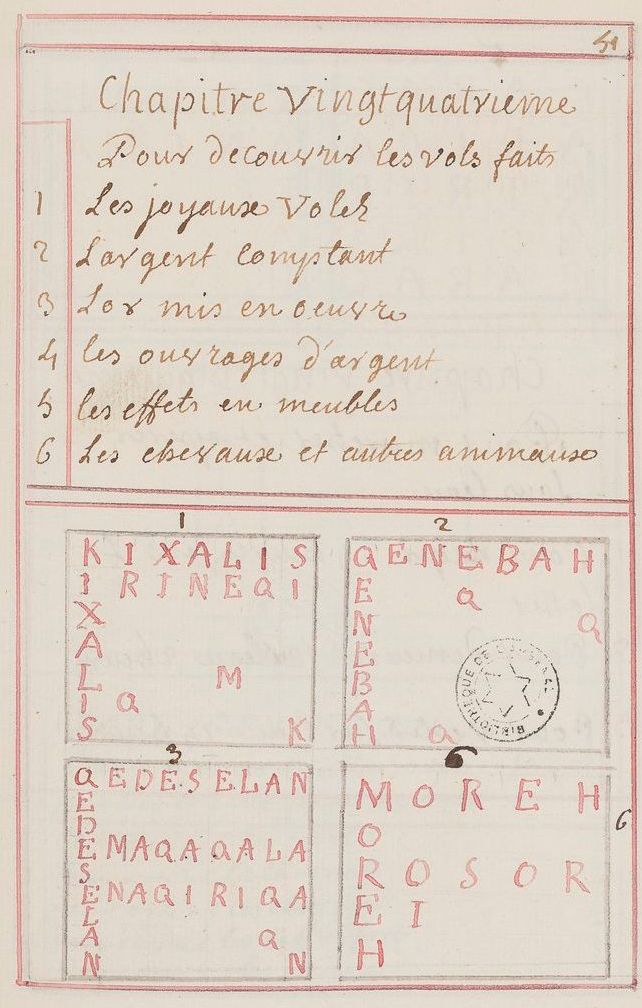 51
Chapitre vingtquatrieme
Pour decouvrir les vols faits
1 Les joyaux Volez
2 Largent comptant
3 Lor mis en oeuvre
4 les ouvrages d'argent
5 les effets en meubles
6 Les chevaux et autres animaux
1
KIXALIS
IRINEQI
X
A
L M
I Q
S K
2
QENEBAH
E Q
N Q
E
B
A
H Q
BIBLIOTHEQUE DE L'ARSENAL
3
QEDESELAN
E
D
EMAQAQALA
S
ENAQIRIQA
L
A Q
N N
6
MOREH
O
6
ROSOR
E I
H